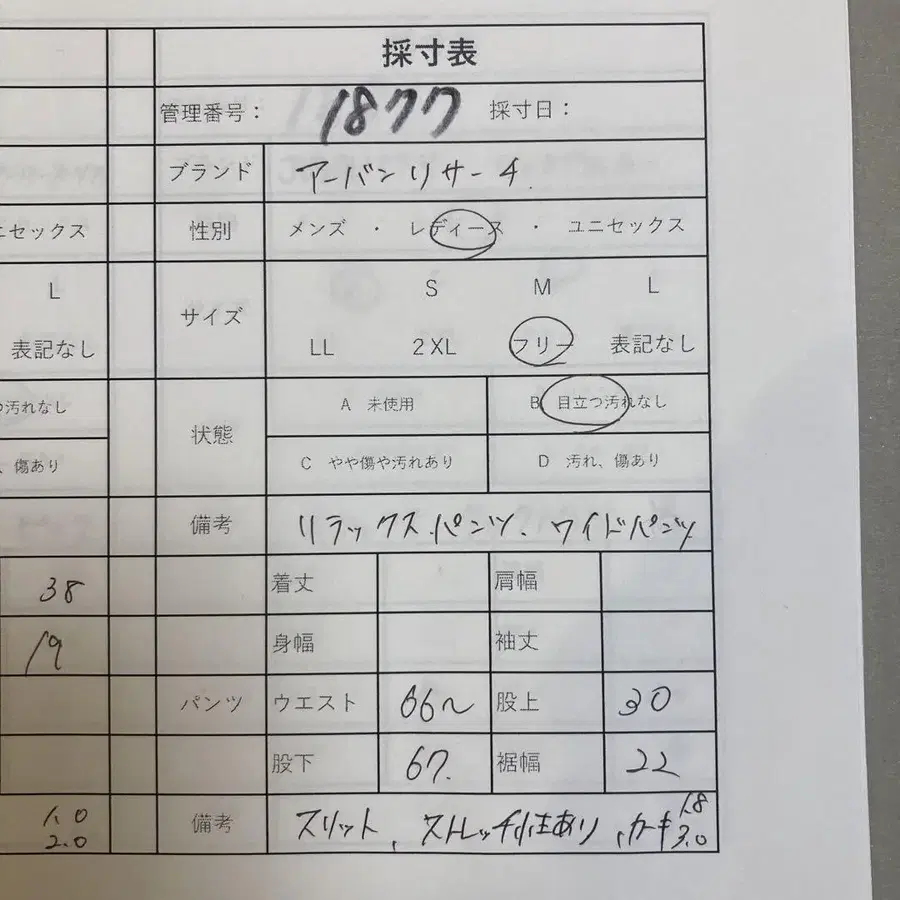 採寸表
管理番号: 1877 採寸日:
ブランド アーバンリサーチ.
ニセックス 性別 メンズ ・ レディース ・ ユニセックス
L サイズ S M L
表記なし LL 2XL フリー 表記なし
汚れなし 状態 A 未使用 B 目立つ汚れなし
、傷あり C やや傷や汚れあり D 汚れ、傷あり
備考 リラックスパンツ、ワイドパンツ
38 着丈 肩幅
19 身幅 袖丈
パンツ ウエスト 66~ 股上 30
股下 67. 裾幅 22
1.0 備考 スリット、ストレッチ性あり、カーキ 1.8
2.0 3.0